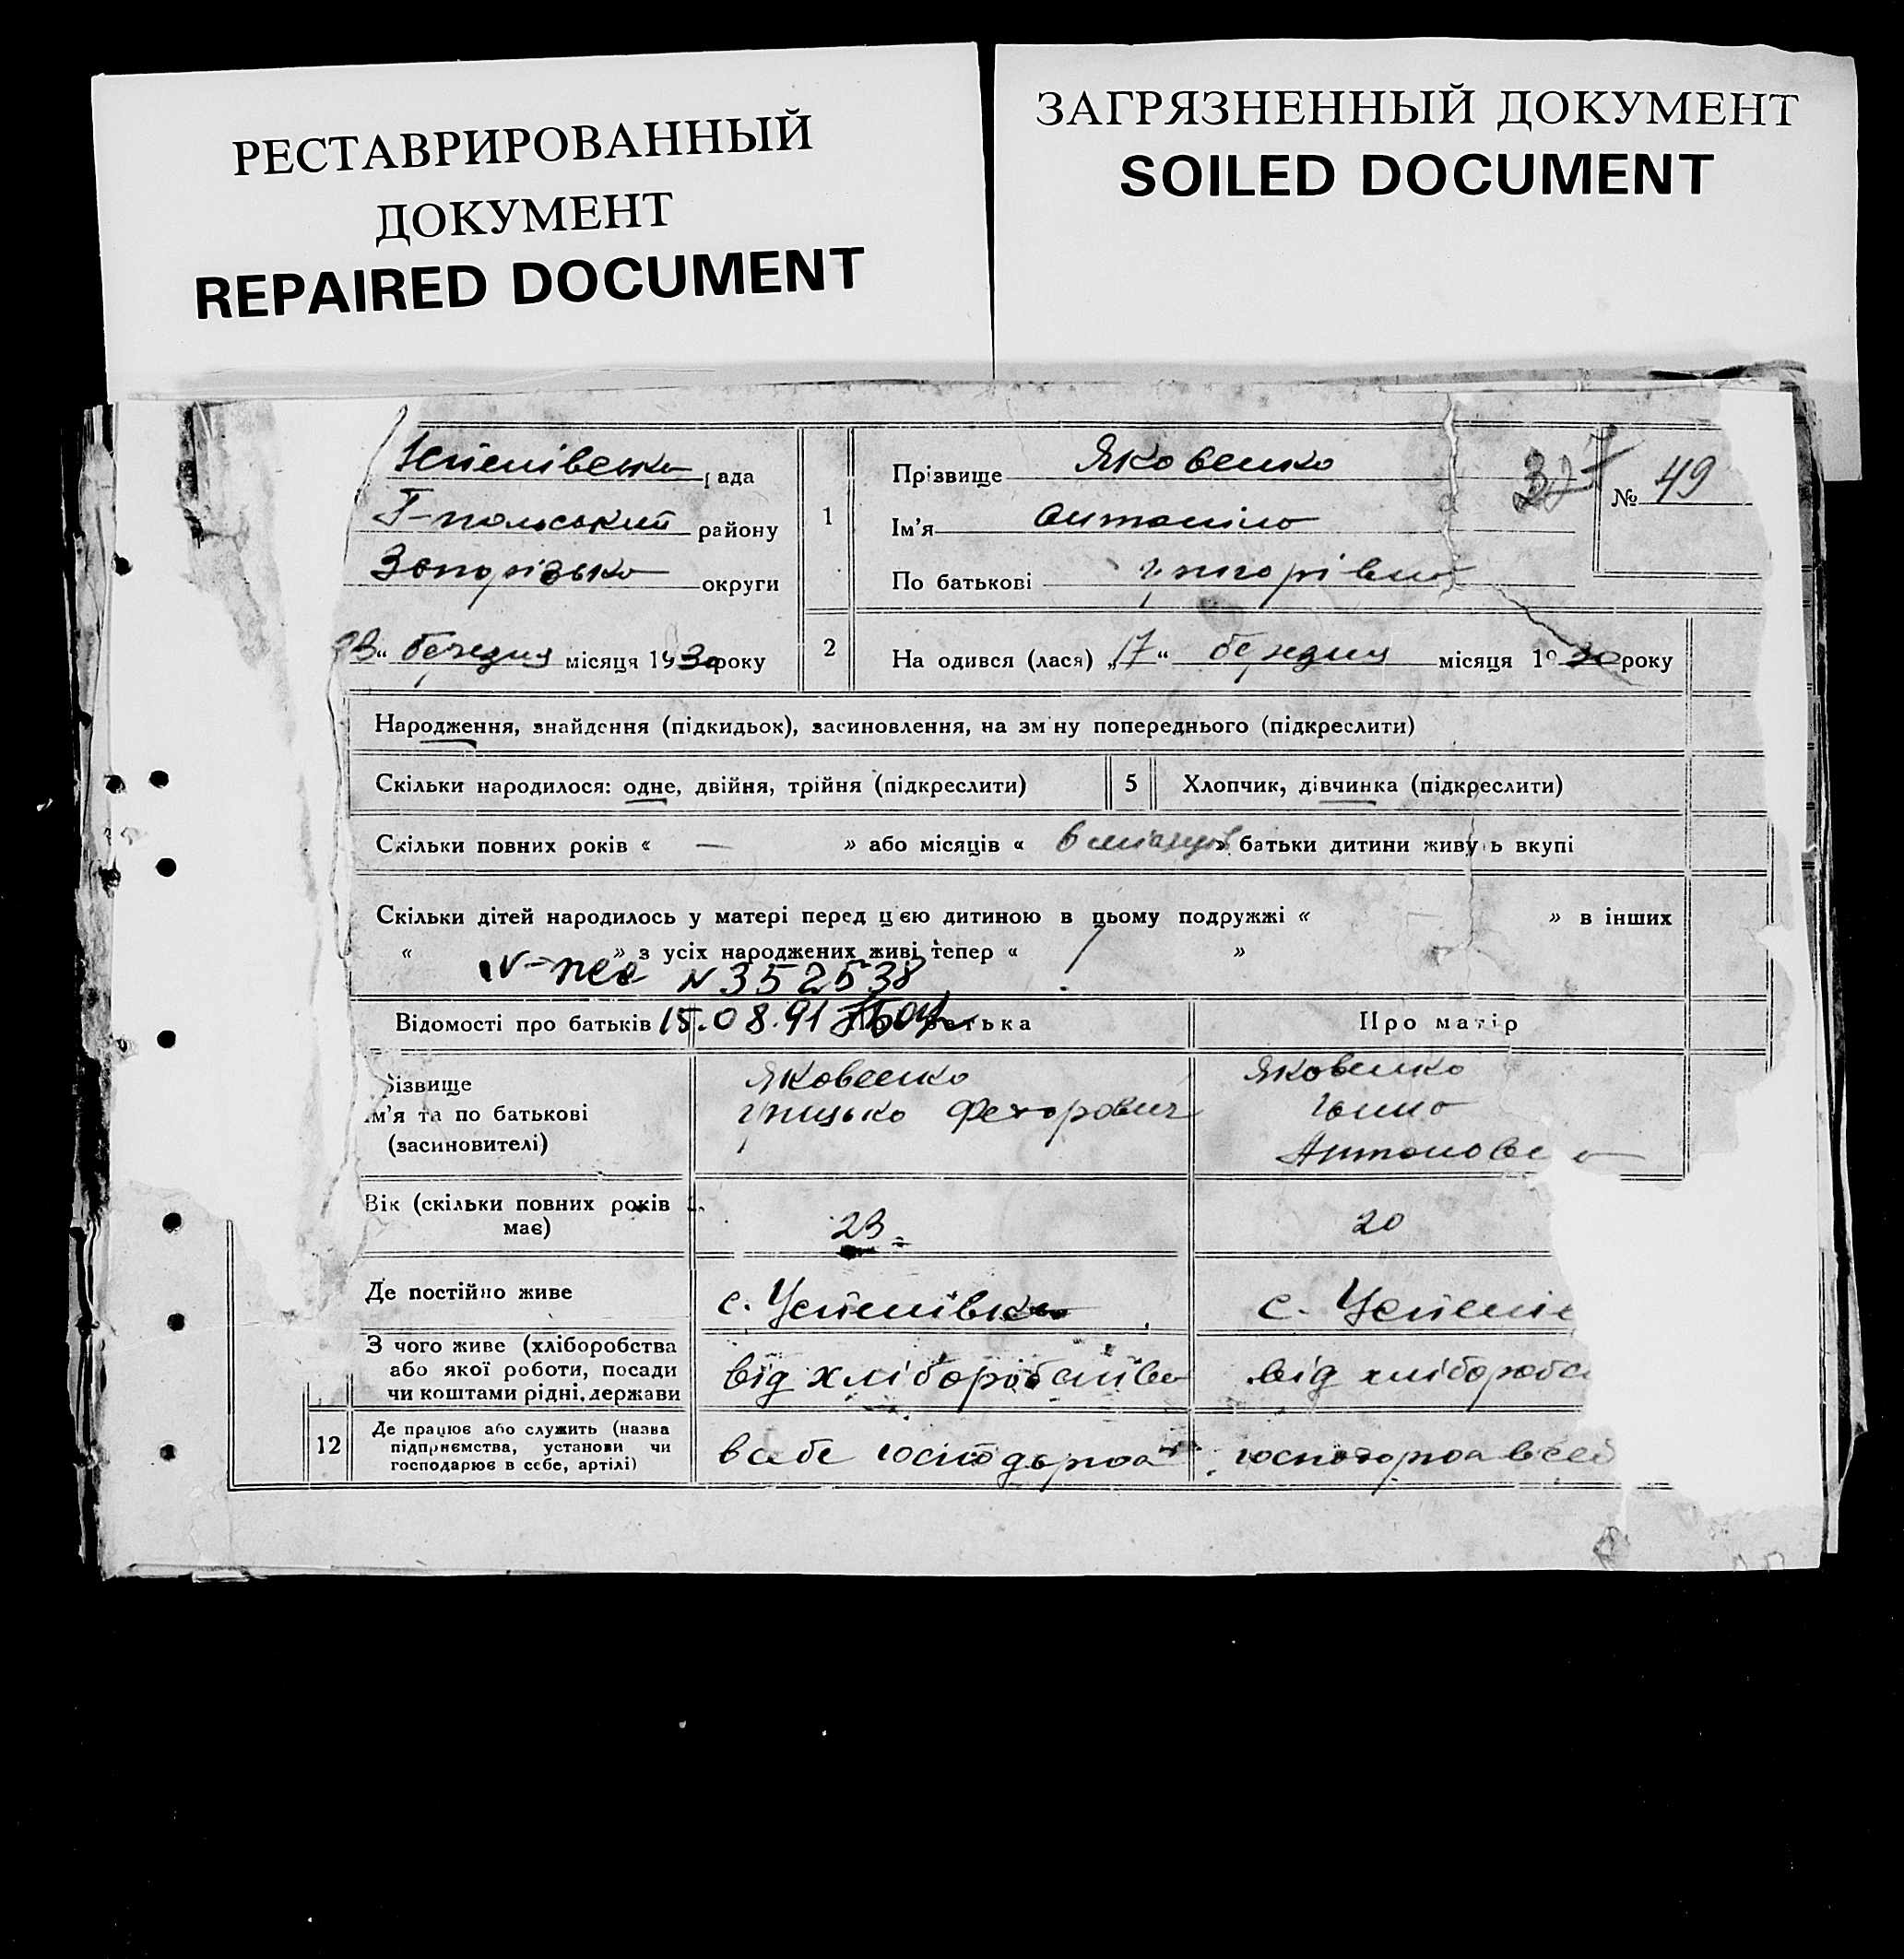 РЕСТАВРИРОВАННЫЙ
ДОКУМЕНТ
REPAIRED DOCUMENT
ЗАГРЯЗНЕННЫЙ ДОКУМЕНТ
SOILED DOCUMENT
Успенівська рада
Г-польський району
Запорізька округи
1
Прізвище Яковенко
Ім'я Антоніна
По батькові Григорівна
№ 49
23 " березня місяця 1930 року
2
На одився (лася) „17" березня місяця 19 30 року
Народження, знайдення (підкидьок), засиновлення, на зм ну попереднього (підкреслити)
Скільки народилося: одне, двійня, трійня (підкреслити)
5
Хлопчик, дівчинка (підкреслити)
Скільки повних років « — » або місяців « 6 місяців » батьки дитини живуть вкупі
Скільки дітей народилось у матері перед цією дитиною в цьому подружжі « » в інших
« » з усіх народжених живі тепер « »
N 352538
Відомості про батьків 15.08.91 батька Про матір
різвище
м'я та по батькові
(засиновителі)
Яковенко
Грицько Федорович
Яковенко
Ганна
Антоновна
Вік (скільки повних років має) 23 20
Де постійно живе с. Успенівка с. Успені
З чого живе (хліборобства
або якої роботи, посади
чи коштами рідні, держави
від хліборобства від хліборобс
12
Де працює або служить (назва
підприємства, установи чи
господарює в себе, артілі)
в себе господарює господарює в себ